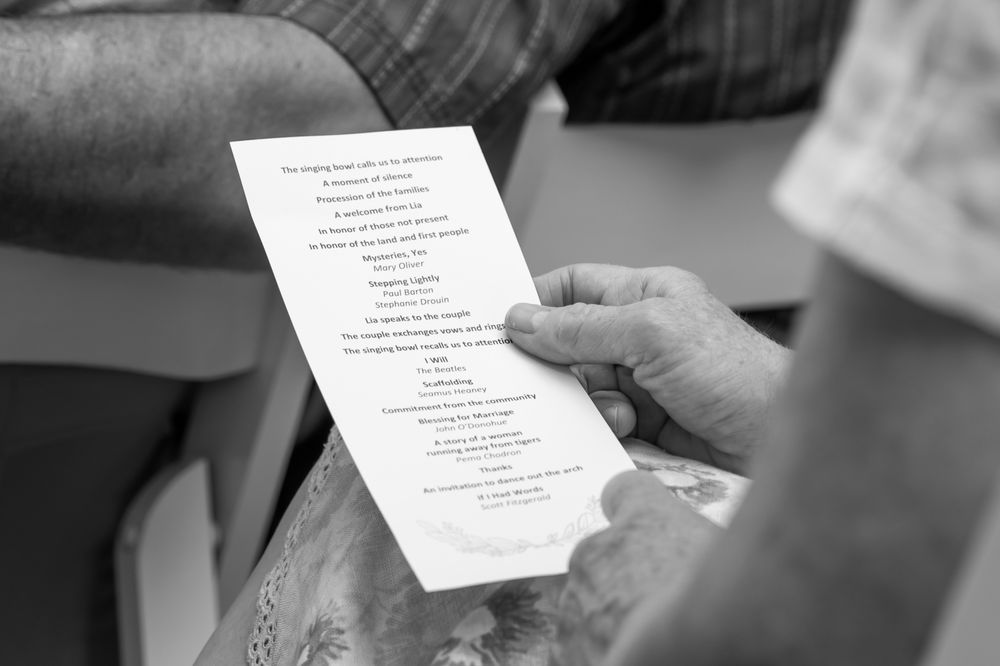 The singing bowl calls us to attention
A moment of silence
Procession of the families
A welcome from Lia
In honor of those not present
In honor of the land and first people
Mysteries, Yes
Mary Oliver
Stepping Lightly
Paul Barton
Stephanie Drouin
Lia speaks to the couple
The couple exchanges vows and rings
The singing bowl recalls us to attention
I Will
The Beatles
Scaffolding
Seamus Heaney
Commitment from the community
Blessing for Marriage
John O'Donohue
A story of a woman
running away from tigers
Pema Chodron
Thanks
An invitation to dance out the arch
If I Had Words
Scott Fitzgerald